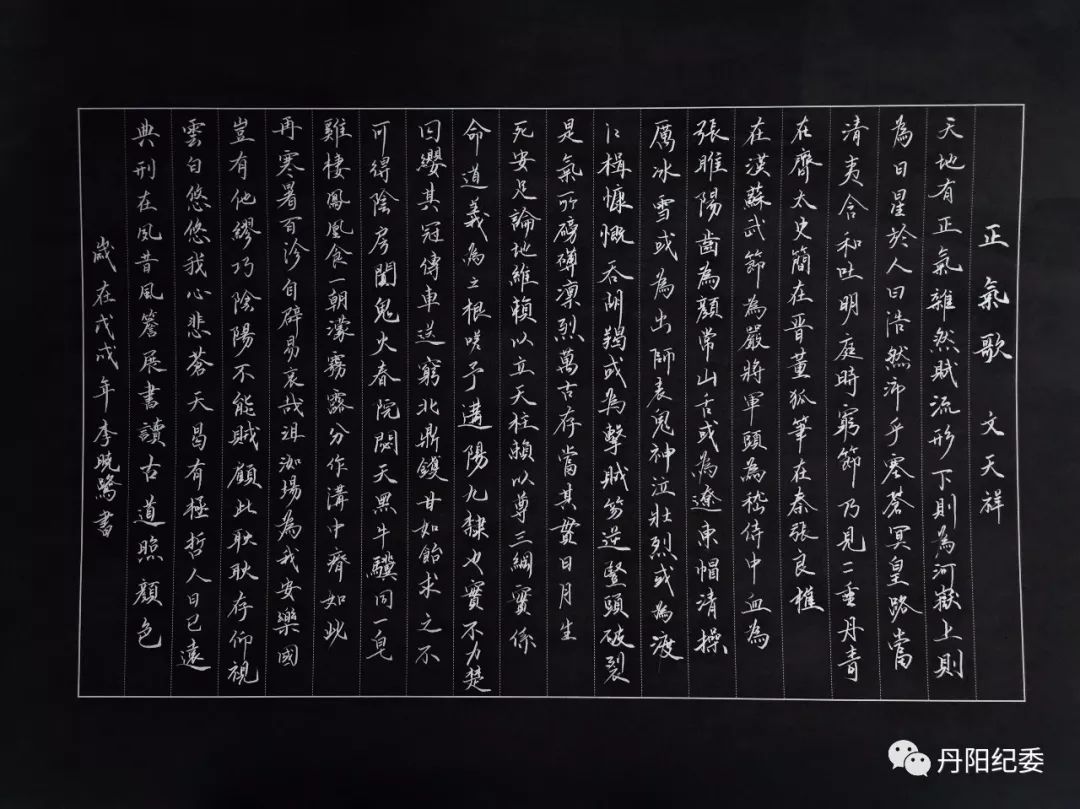 正氣歌 文天祥
天地有正氣雜然賦流形下則為河嶽上則
為日星於人曰浩然沛乎塞蒼冥皇路當
清夷含和吐明庭時窮節乃見一一垂丹青
在齊太史簡在晉董狐筆在秦張良椎
在漢蘇武節為嚴將軍頭為嵇侍中血為
張睢陽齒為顏常山舌或為遼東帽清操
厲冰雪或為出師表鬼神泣壯烈或為渡
江楫慷慨吞胡羯或為擊賊笏逆豎頭破裂
是氣所磅礴凜烈萬古存當其貫日月生
死安足論地維賴以立天柱賴以尊三綱實係
命道義為之根嗟予遘陽九隸也實不力楚
囚纓其冠傳車送窮北鼎鑊甘如飴求之不
可得陰房闃鬼火春院閟天黑牛驥同一皂
雞棲鳳凰食一朝濛霧露分作溝中瘠如此
再寒暑百沴自辟易哀哉沮洳場為我安樂國
豈有他繆巧陰陽不能賊顧此耿耿存仰視
雲白悠悠我心悲蒼天曷有極哲人日已遠
典刑在夙昔風簷展書讀古道照顏色
歲在戊戌年李曉鷺書
丹阳纪委